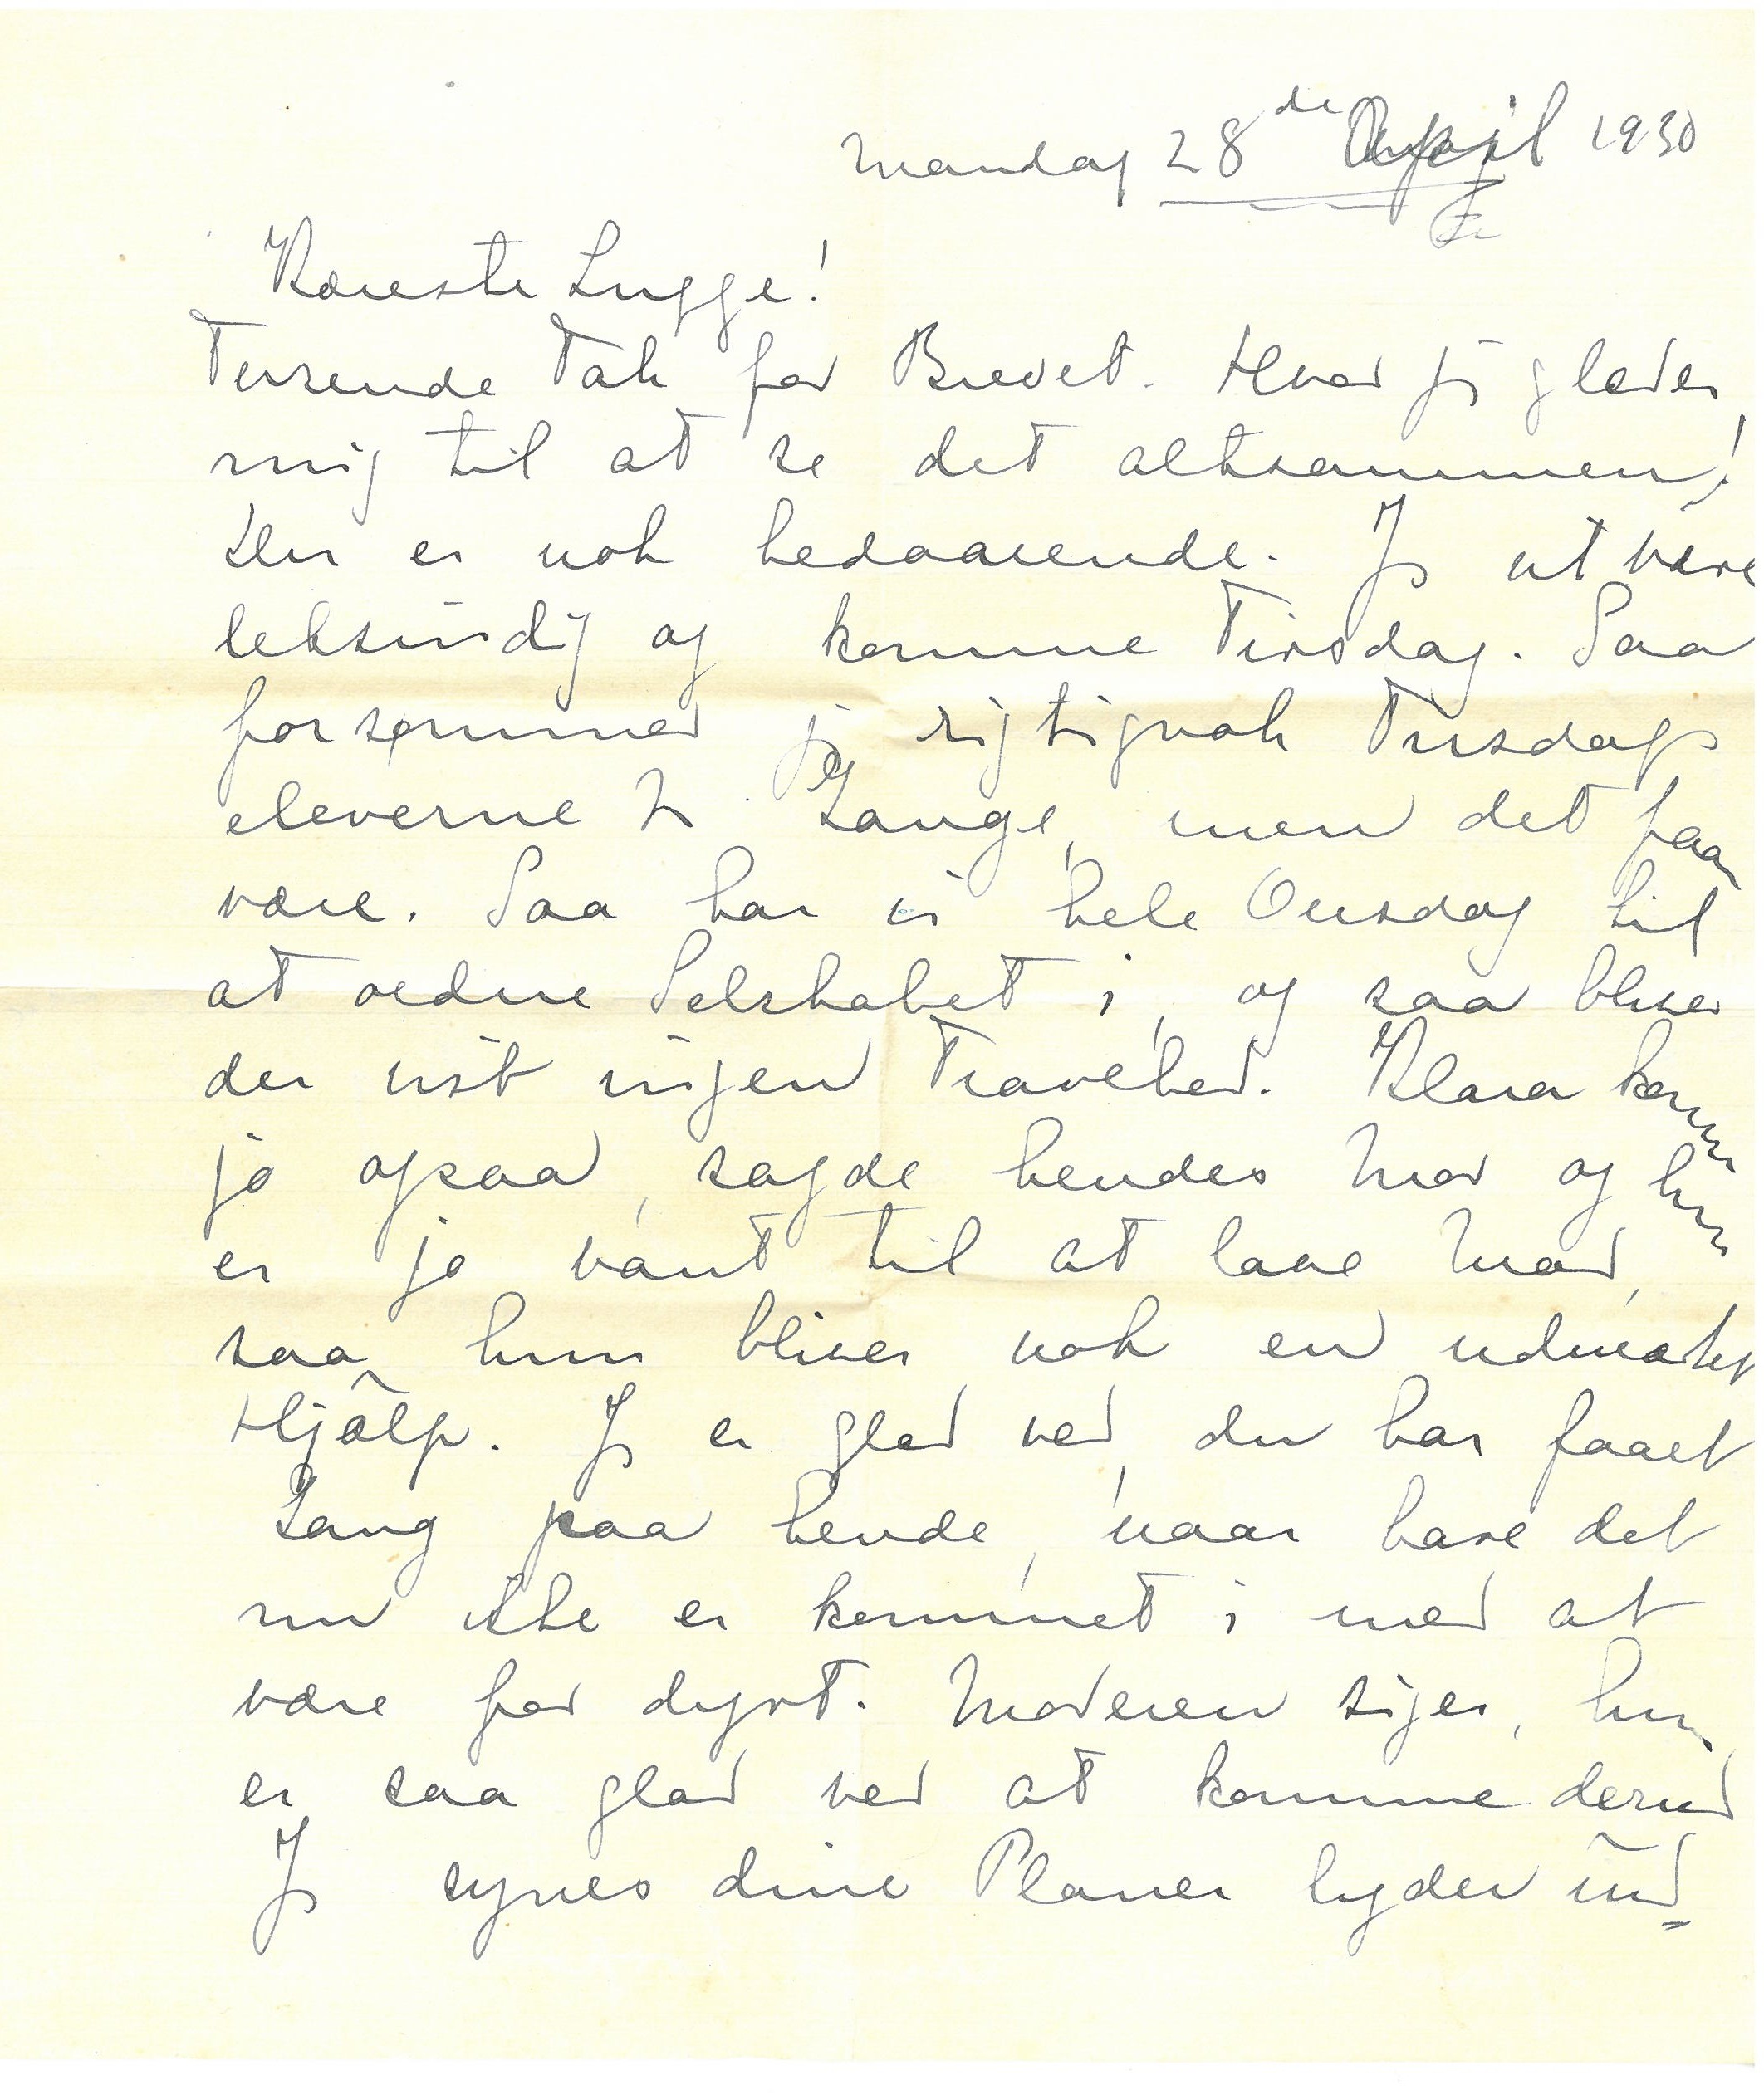 Mandag 28de April 1930
Kæreste Lugge!
Tusende Tak for Brevet. Hvor jeg glæder
mig til at se det altsammen!
Der er nok bedaarende. Jeg vil være
letsindig og komme Tirsdag. Saa
forsømmer jeg rigtignok Tirsdags
eleverne 2 Gange, men det faar
være. Saa har vi hele Onsdag til
at ordne Selskabet i, og saa bliver
der vist ingen Travlhed. Klara kommer
jo ogsaa, sagde hendes Mor og hun
er jo vant til at lave Mad,
saa hun bliver nok en udmærket
Hjælp. Jeg er glad ved, du har faaet
Gang paa hende, naar bare det
nu ikke er kommet i med at
være for dyrt. Moderen siger, hun
er saa glad ved at komme derud
Jeg synes dine Planer lyder ud=